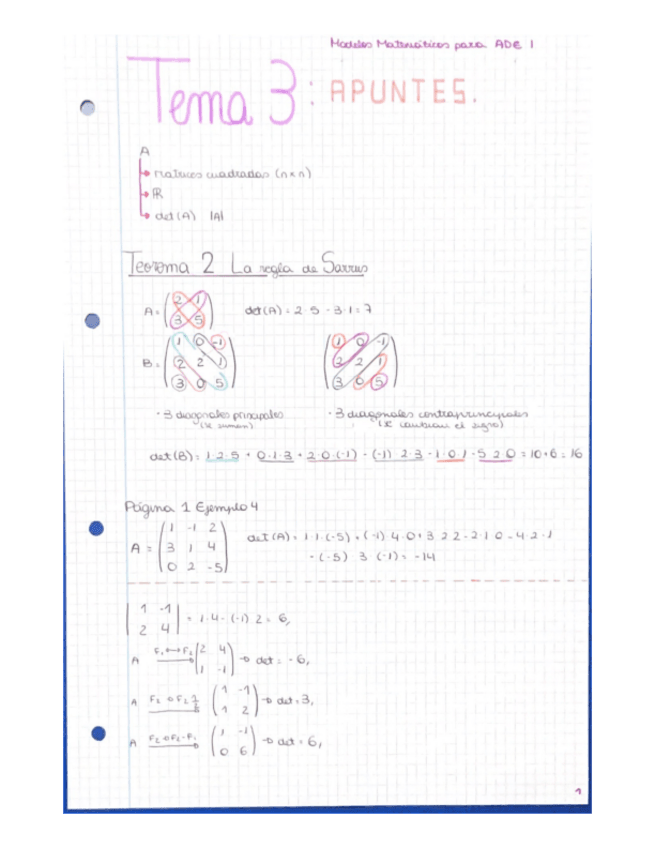 Modelos Matemáticos para ADE I
Tema 3: APUNTES.
A
→ matrices cuadradas (n×n)
→ ℝ
→ det(A) |A|
Teorema 2 La regla de Sarrus
A = (2 1
3 5) det(A) = 2·5 - 3·1 = 7
B = (1 0 -1
2 2 1
3 0 5) (1 0 -1
2 2 1
3 0 5)
· 3 diagonales principales · 3 diagonales contraprincipales
(se suman) (se cambian el signo)
det(B) = 1·2·5 + 0·1·3 + 2·0·(-1) - (-1)·2·3 - 1·0·1 - 5·2·0 = 10+6 = 16
Página 1 Ejemplo 4
A = (1 -1 2
3 1 4
0 2 -5) det(A) = 1·1·(-5) + (-1)·4·0 + 3·2·2 - 2·1·0 - 4·2·1
- (-5)·3·(-1) = -14
|1 -1
2 4| = 1·4 - (-1)·2 = 6,
A F₁↔F₂ (2 4
1 -1) → det = -6,
A (1 -1
1 2) → det = 3,
A F₂→F₂-F₁ (1 -1
0 6) → det = 6,
1